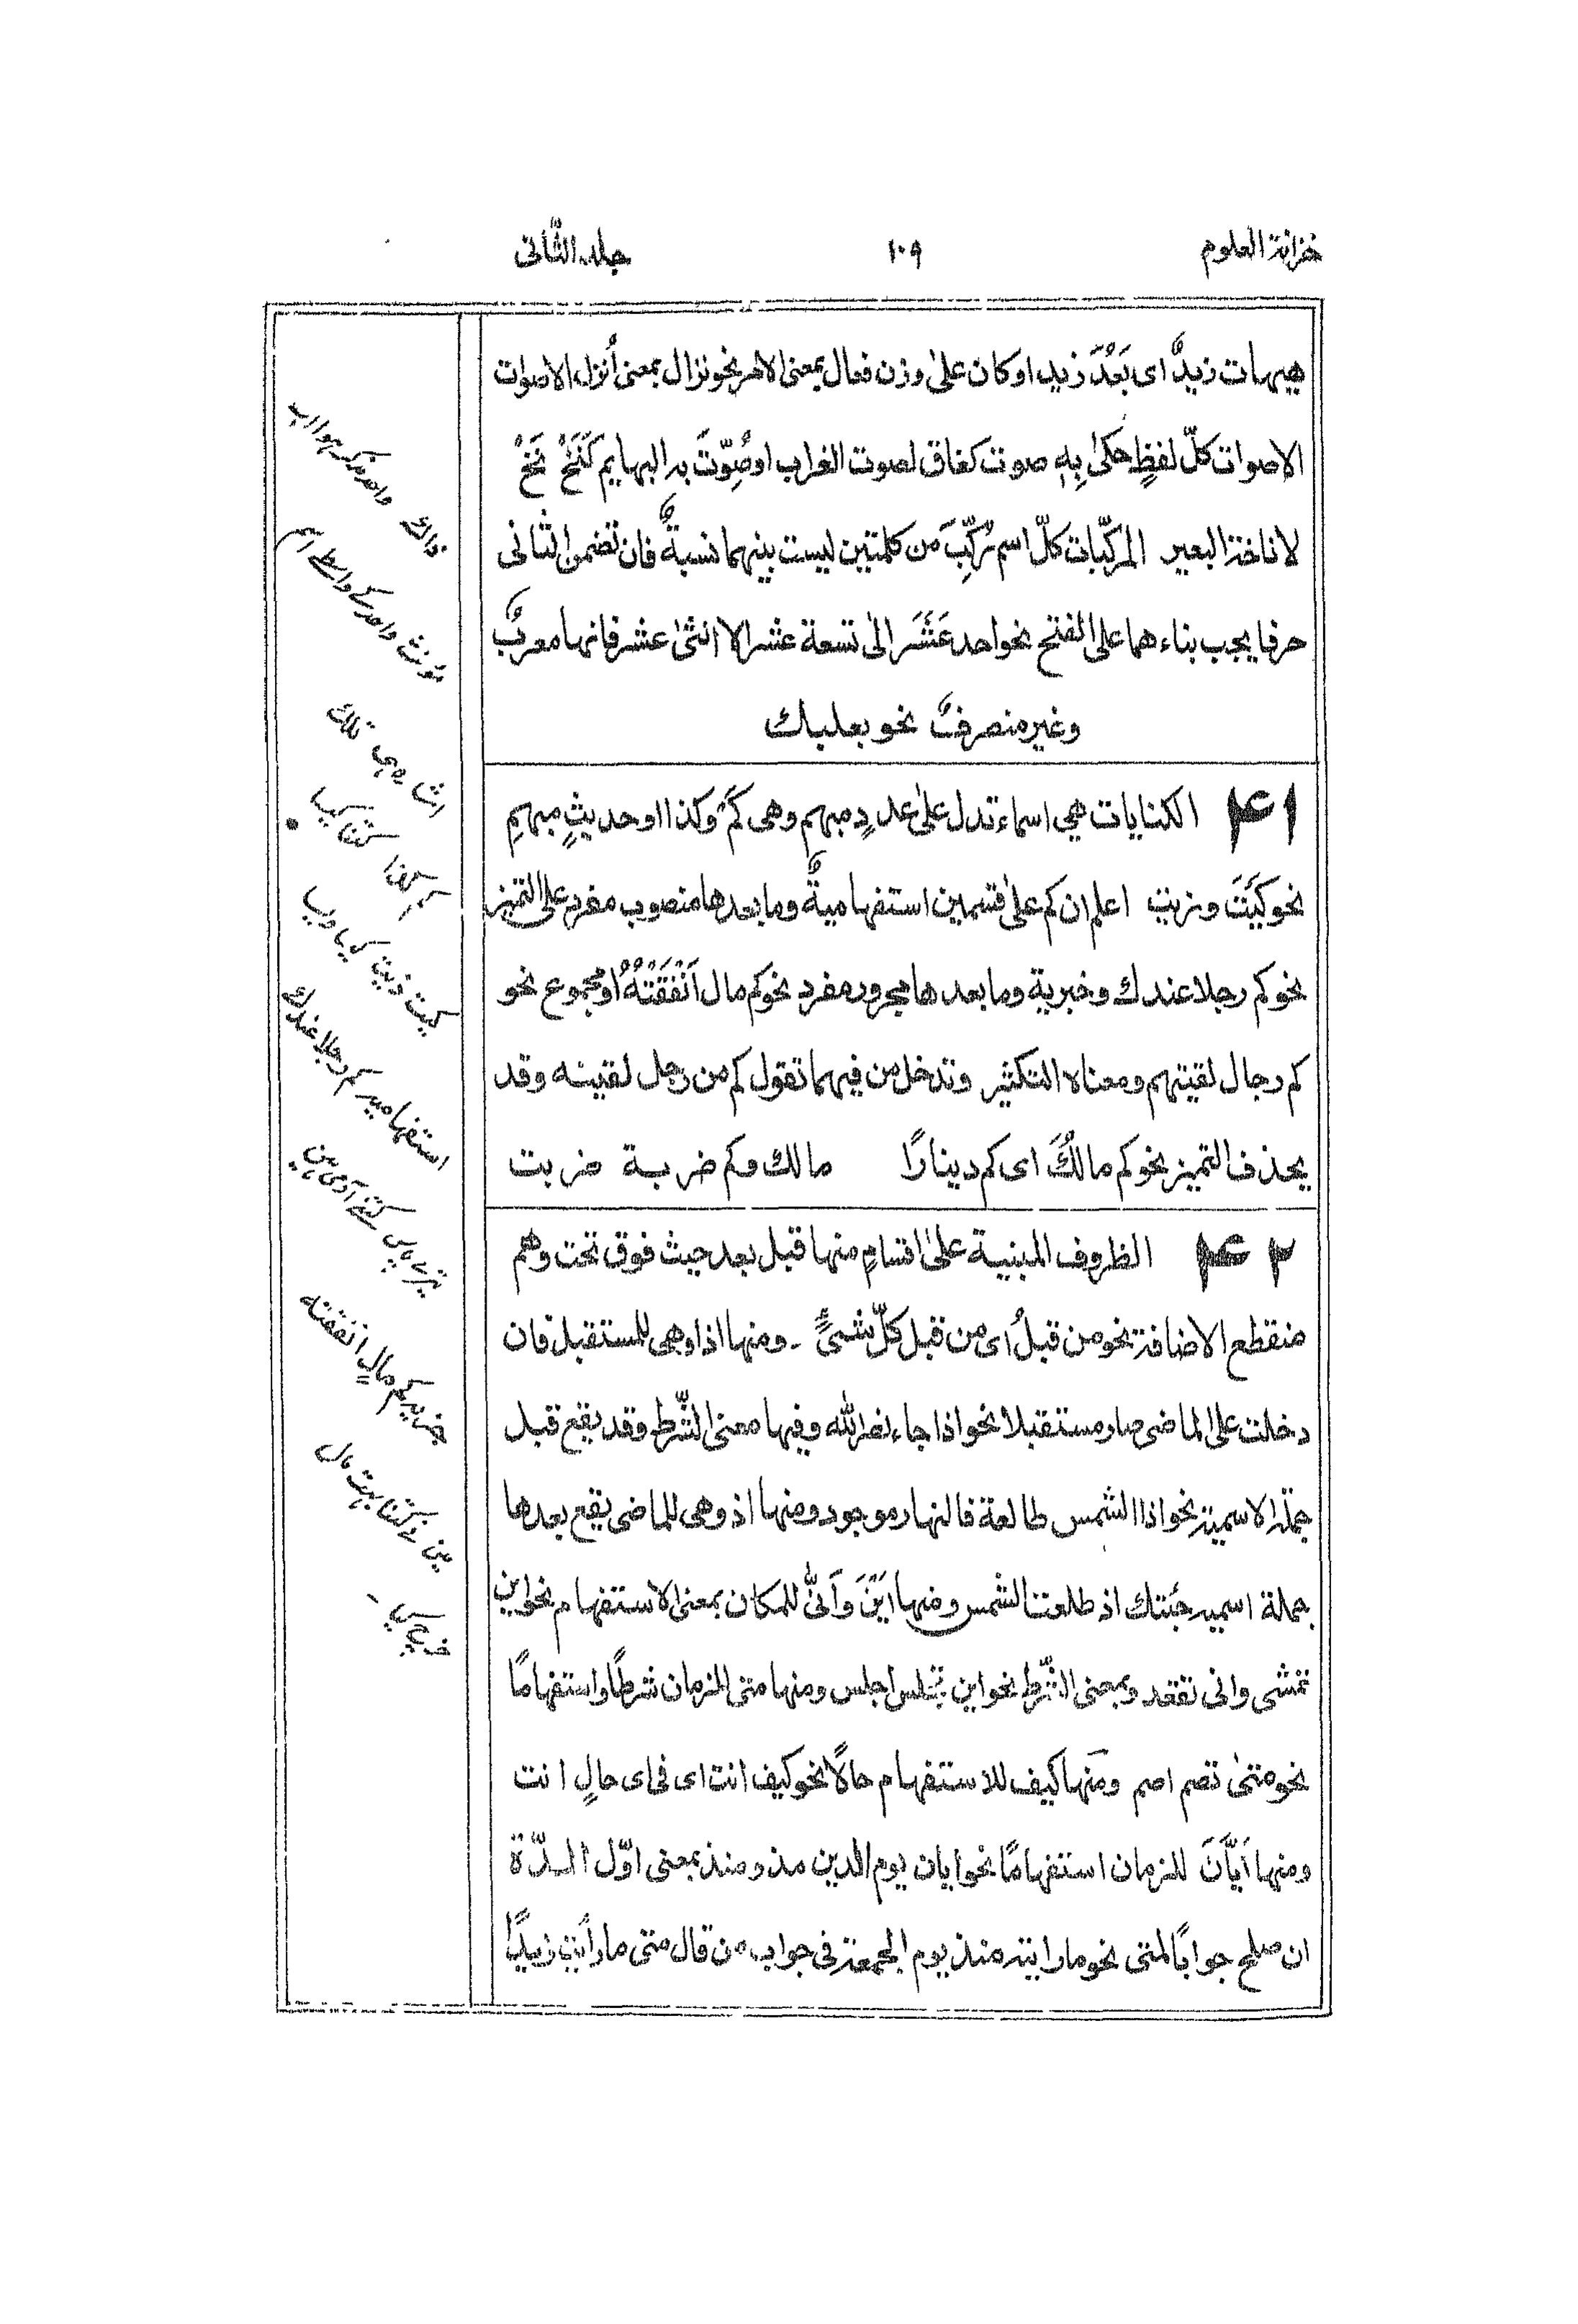 خزانة العلوم
١٠٩
جلد الثّانی
هیهات زیدٌ ای بَعُدَ زید او کان علیٰ وزن فعال بمعنی الامر نحو نزال بمعنی اُنزل الاصوات
الاصوات کلّ لفظٍ حکیٰ بِهٖ صوت کغاق لصوت الغراب او صُوِّتَ به البهایم کَنَخْ نَخْ
لاناخة البعیر المرکّبات کلّ اسم رُکِّبَ من کلمتین لیست بینهما نسبةٌ فان تضمن الثانی
حرفا یجب بناءهما علی الفتح نحو احد عَشَرَ الی تسعة عشر الا اثنیٰ عشر فانها معربٌ
وغیر منصرفٌ نحو بعلبك
۴۱ الکنایات هی اسماء تدل علیٰ عددٍ مبهم وهی کَمْ وکذا او حدیثٍ مبهمٍ
نحو کَیَتَ و زیت اعلم ان کم علیٰ قسمین استفهامیةٌ وما بعدها منصوب مفرد علی التمیز
نحو کم رجلا عندك وخبریة وما بعدها مجرور مفرد نحو کم مال اَنْفَقْتَهُ او مجموع نحو
کم رجال لقیتهم ومعناه التکثیر وتدخل من فیهما تقول کم من رجل لقیته وقد
یحذف التمیز نحو کم مالُكَ ای کم دینارًا مالك وکم ضربة ضربت
۴۲ الظروف المبنیة علیٰ اقسامٍ منها قبل بعد حیث فوق تحت وهم
منقطع الاضافة نحو من قبلُ ای من قبل کلّ شیءٍ ۔ ومنها اذا وهی للمستقبل فان
دخلت علی الماضی صار مستقبلا نحو اذا جاء نصر الله وفیها معنی الشّرط وقد یقع قبل
جملة الاسمیة نحو اذا الشمس طالعة فالنهار موجود ومنها اذ وهی للماضی یقع بعدها
جملة اسمیه جئتك اذ طلعت الشمس ومنها اَیْنَ وَاَنّیٰ للمکان بمعنی الاستفهام نحو این
تمشی وانی تقعد وبمعنی الشّرط نحو این تجلس اجلس ومنها متی للزمان شرطًا واستفهامًا
نحو متیٰ تصم اصم ومنها کیف للاستفهام حالًا نحو کیف انت ای فی ای حالٍ انت
ومنها اَیَّانَ للزمان استفهامًا نحو ایان یوم الدین مذ ومنذ بمعنی اوّل المدّة
ان صلح جوابًا لمتی نحو ما رایته منذ یوم الجمعة فی جواب من قال متی ما رأیت زیدًا
ذاك واحد مذکر هو اب
مؤنث واحد کے واسطے اسم
اشارہ ہی تلك
کم کذا کتنا کیا
کیت ذیت کیا ویسا
استفهامیه کم رجلا عندك
تیرے پاس کتنے آدمی ہین
خبریه کم مالٍ انفقته
مین نے کتنا بہت مال
خرچ کیا ۔